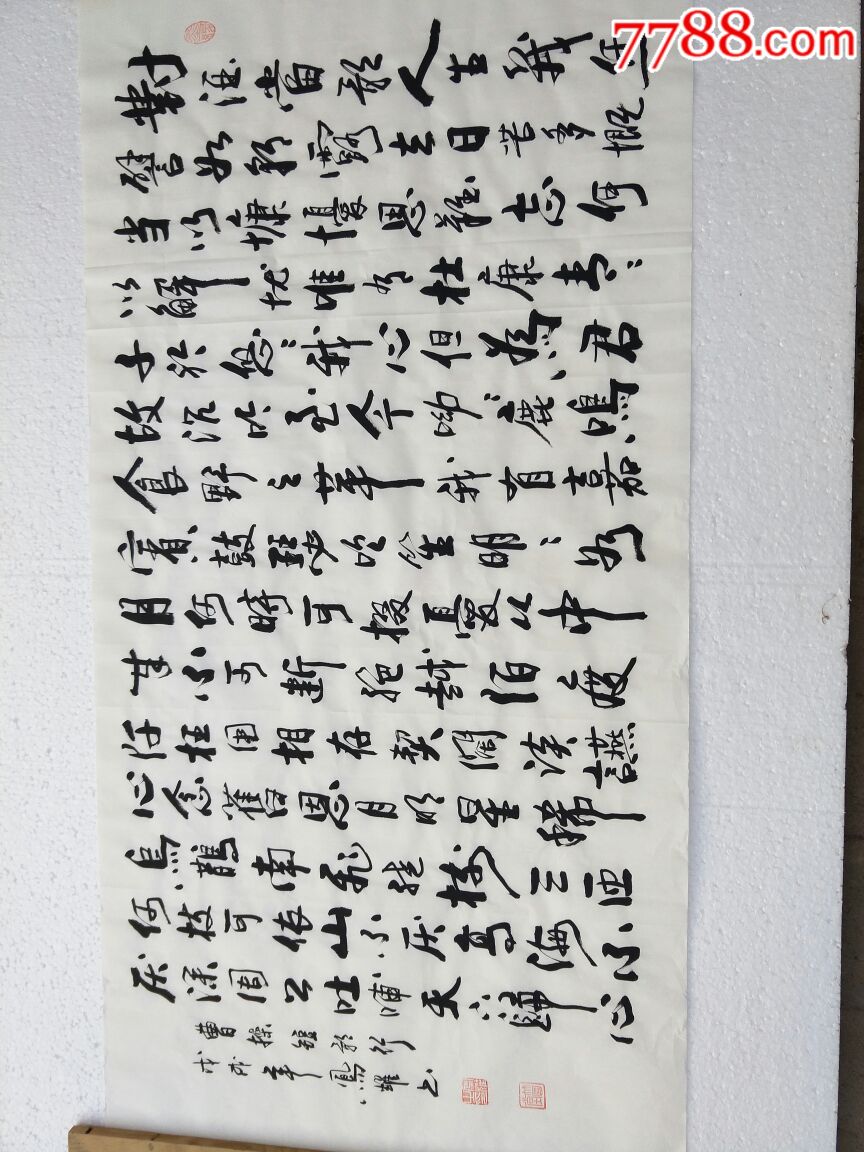 7788.com
對酒當歌人生幾何
譬如朝露去日苦多慨
当以慷憂思難忘何
以解忧唯有杜康青々
子衿悠々我心但為君
故沉吟至今呦々鹿鳴
食野之苹我有嘉
賓鼓瑟吹笙明々如
月何時可掇憂從中
来不可断絕越陌度
阡枉用相存契闊談讌
心念舊恩月明星稀
烏鵲南飛繞樹三匝
何枝可依山不厭高海不
厭深周公吐哺天下歸心
曹操短歌行
戊戌年鳳書